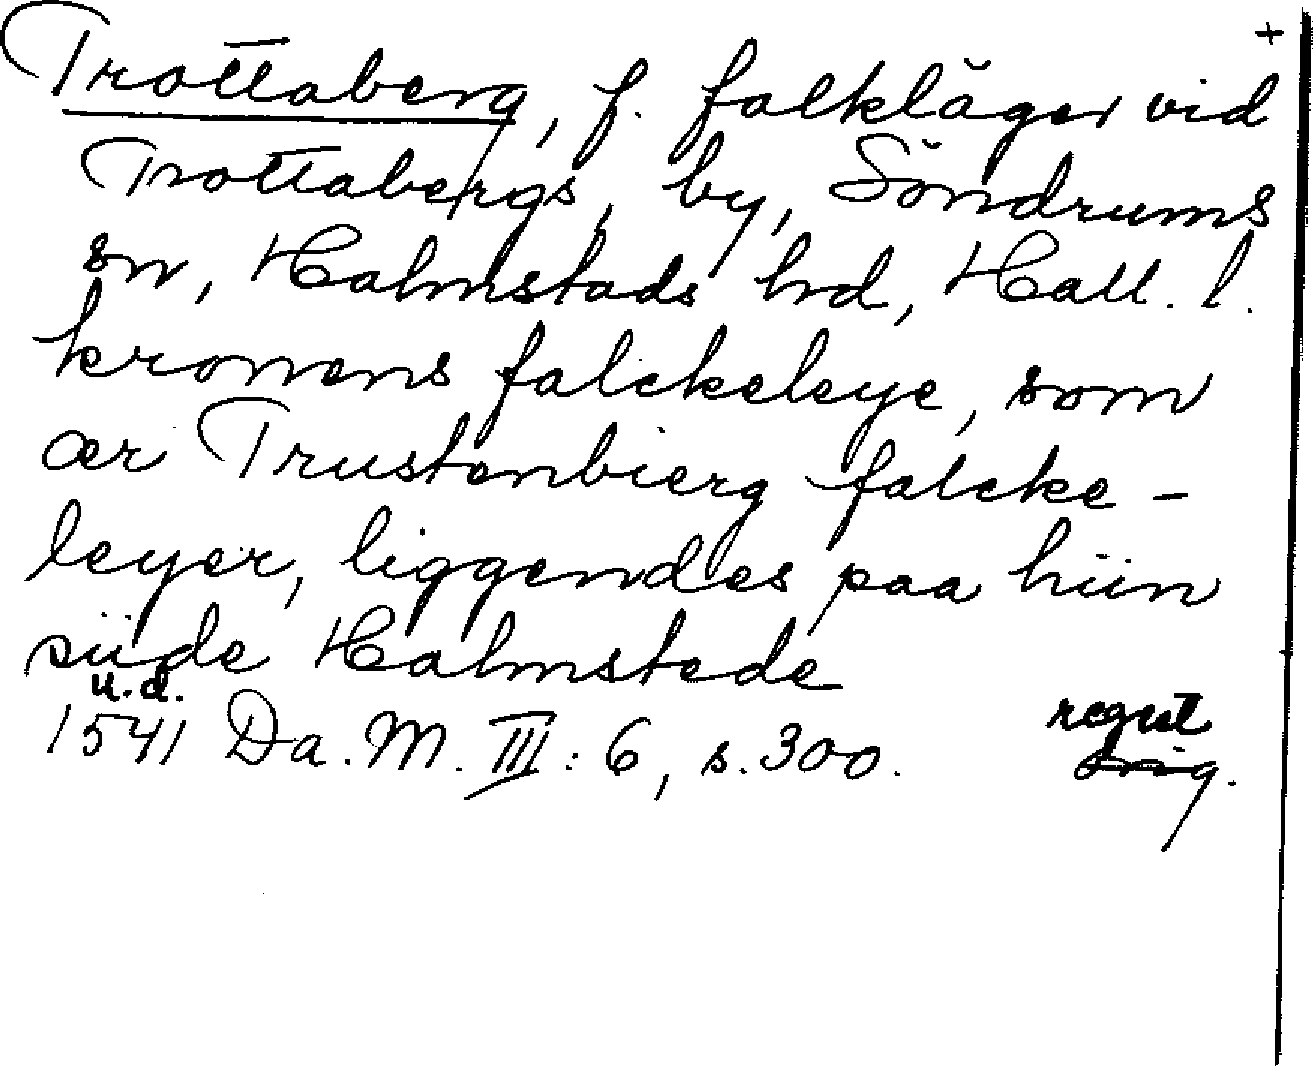 +
Trottaberg, f. falkläger vid
Trottabergs, by, Söndrums
sn, Halmstads hd, Hall. l.
kronens falckeleye, som
ær Trustenbierg falcke-
leyer, liggendes paa hiin
siide Halmstede
u.d.
1541 Da. M. III: 6, s. 300. regest
orig.